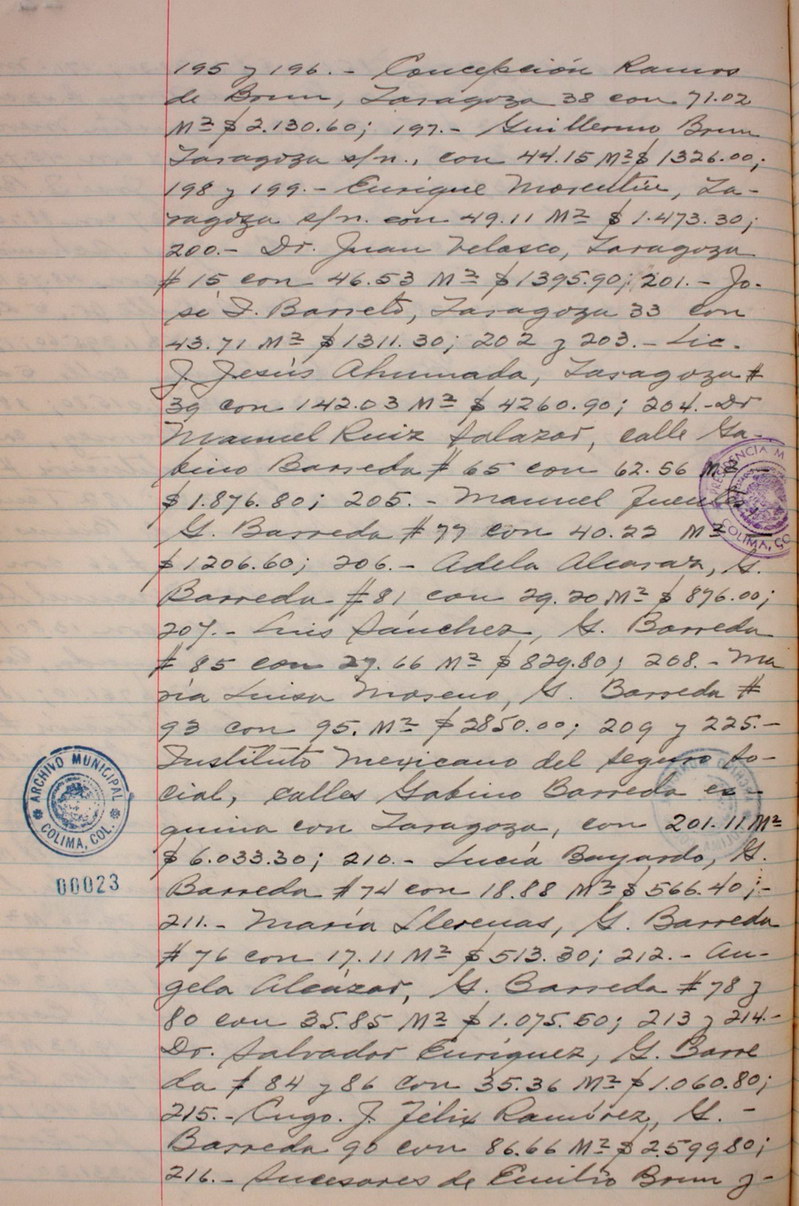 195 y 196.- Concepción Ramos
de Brun, Zaragoza 38 con 71.02
M² $ 2.130.60; 197.- Guillermo Brun
Zaragoza s/n., con 44.15 M² $ 1326.00;
198 y 199.- Enrique Morentín, Za-
ragoza s/n. con 49.11 M² $ 1.473.30;
200.- Dr. Juan Velasco, Zaragoza
# 15 con 46.53 M² $ 1395.90; 201.- Jo-
sé I. Barreto, Zaragoza 33 con
43.71 M² $ 1311.30; 202 y 203.- Lic.
J. Jesús Ahumada, Zaragoza #
39 con 142.03 M² $ 4260.90; 204.- Dr
Manuel Ruiz Salazar, calle Ga-
bino Barreda # 65 con 62.56 M² -
$ 1.876.80; 205.- Manuel Fuentes
G. Barreda # 77 con 40.22 M²
$ 1206.60; 206.- Adela Alcaraz, G.
Barreda # 81, con 29.20 M² $ 876.00;
207.- Luis Sánchez, G. Barreda
# 85 con 27.66 M² $ 829.80; 208.- Ma
ría Luisa Moreno, G. Barreda #
93 con 95. M² $ 2850.00; 209 y 225.-
Instituto Mexicano del Seguro So-
cial, calles Gabino Barreda es-
quina con Zaragoza, con 201.11 M²
$ 6.033.30; 210.- Lucía Bayardo, G.
Barreda # 74 con 18.88 M² $ 566.40;-
211.- María Llerenas, G. Barreda
# 76 con 17.11 M² $ 513.30; 212.- An-
gela Alcázar, G. Barreda # 78 y
80 con 35.85 M² $ 1.075.50; 213 y 214.-
Dr. Salvador Enríquez, G. Barre
da # 84 y 86 con 35.36 M² $ 1.060.80;
215.- Engo. J. Félix Ramírez, G. -
Barreda 90 con 86.66 M² $ 2599.80;
216.- Sucesores de Emilio Brun y-
ARCHIVO MUNICIPAL
COLIMA, COL.
00023
COLIMA, CO